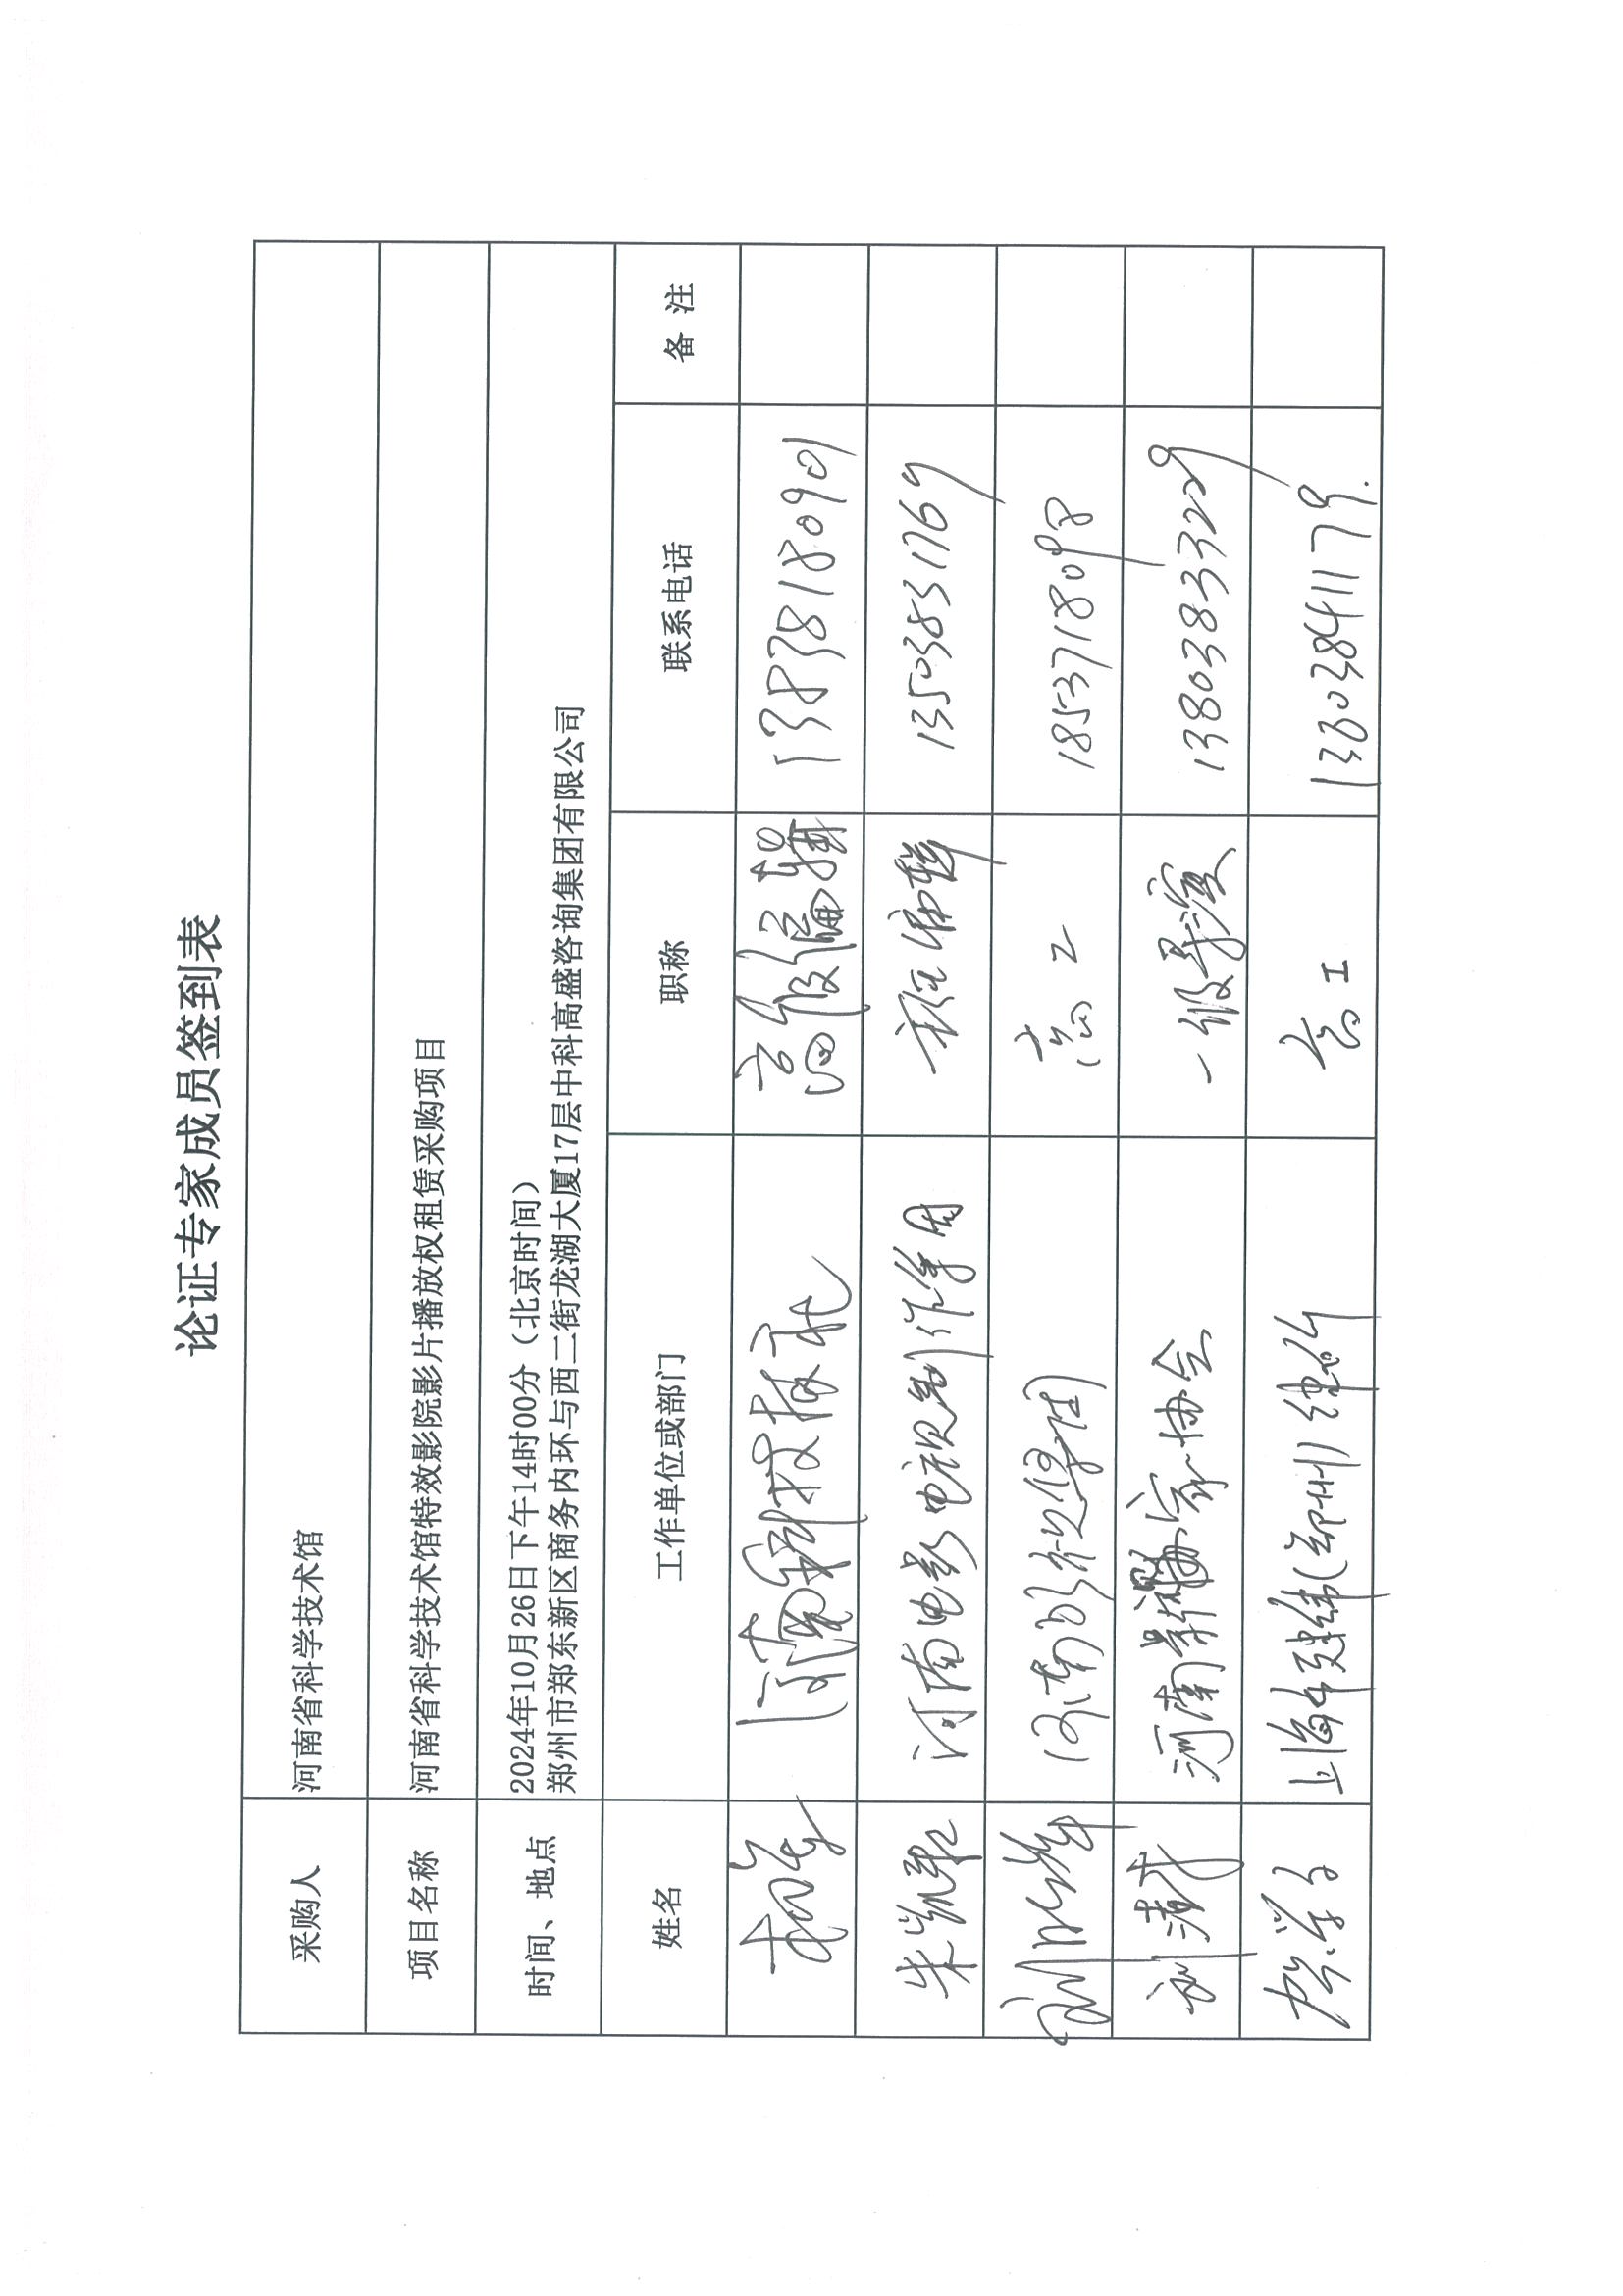 论证专家成员签到表
采购人 河南省科学技术馆
项目名称 河南省科学技术馆特效影院影片播放权租赁采购项目
时间、地点 2024年10月26日下午14时00分（北京时间）
郑州市郑东新区商务内环与西二街龙湖大厦17层中科高盛咨询集团有限公司
姓名 工作单位或部门 职称 联系电话 备 注
河南科技报社 高级编辑 13838180901
朱 河南电影电视制作集团 主任编辑 13503831769
刘 高工 18537178098
刘 河南省 家协会 一级导演 13803833229
贺 上海 建纬(郑州)律所 高工 13303841179.